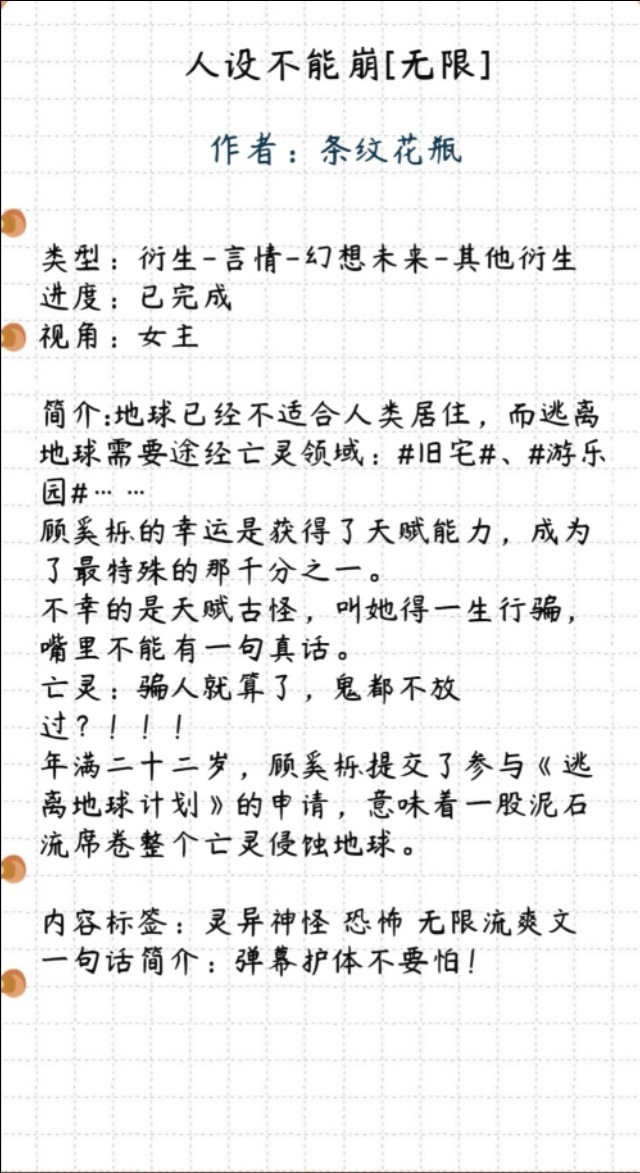 人设不能崩[无限]
作者：条纹花瓶
类型：衍生-言情-幻想未来-其他衍生
进度：已完成
视角：女主
简介:地球已经不适合人类居住，而逃离
地球需要途经亡灵领域：#旧宅#、#游乐
园#……
顾奚栎的幸运是获得了天赋能力，成为
了最特殊的那千分之一。
不幸的是天赋古怪，叫她得一生行骗，
嘴里不能有一句真话。
亡灵：骗人就算了，鬼都不放
过？！！！
年满二十二岁，顾奚栎提交了参与《逃
离地球计划》的申请，意味着一股泥石
流席卷整个亡灵侵蚀地球。
内容标签：灵异神怪 恐怖 无限流爽文
一句话简介：弹幕护体不要怕！